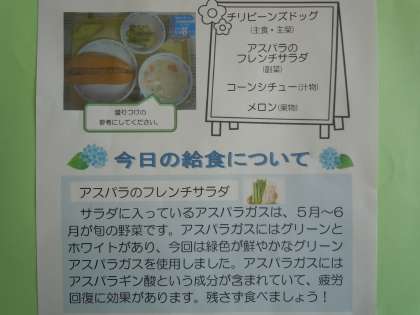 チリビーンズドッグ
(主食・主菜)
アスパラの
フレンチサラダ
(副菜)
コーンシチュー(汁物)
メロン(果物)
盛りつけの
参考にしてください。
今日の給食について
アスパラのフレンチサラダ
サラダに入っているアスパラガスは、5月～6
月が旬の野菜です。アスパラガスにはグリーンと
ホワイトがあり、今回は緑色が鮮やかなグリーン
アスパラガスを使用しました。アスパラガスには
アスパラギン酸という成分が含まれていて、疲労
回復に効果があります。残さず食べましょう！